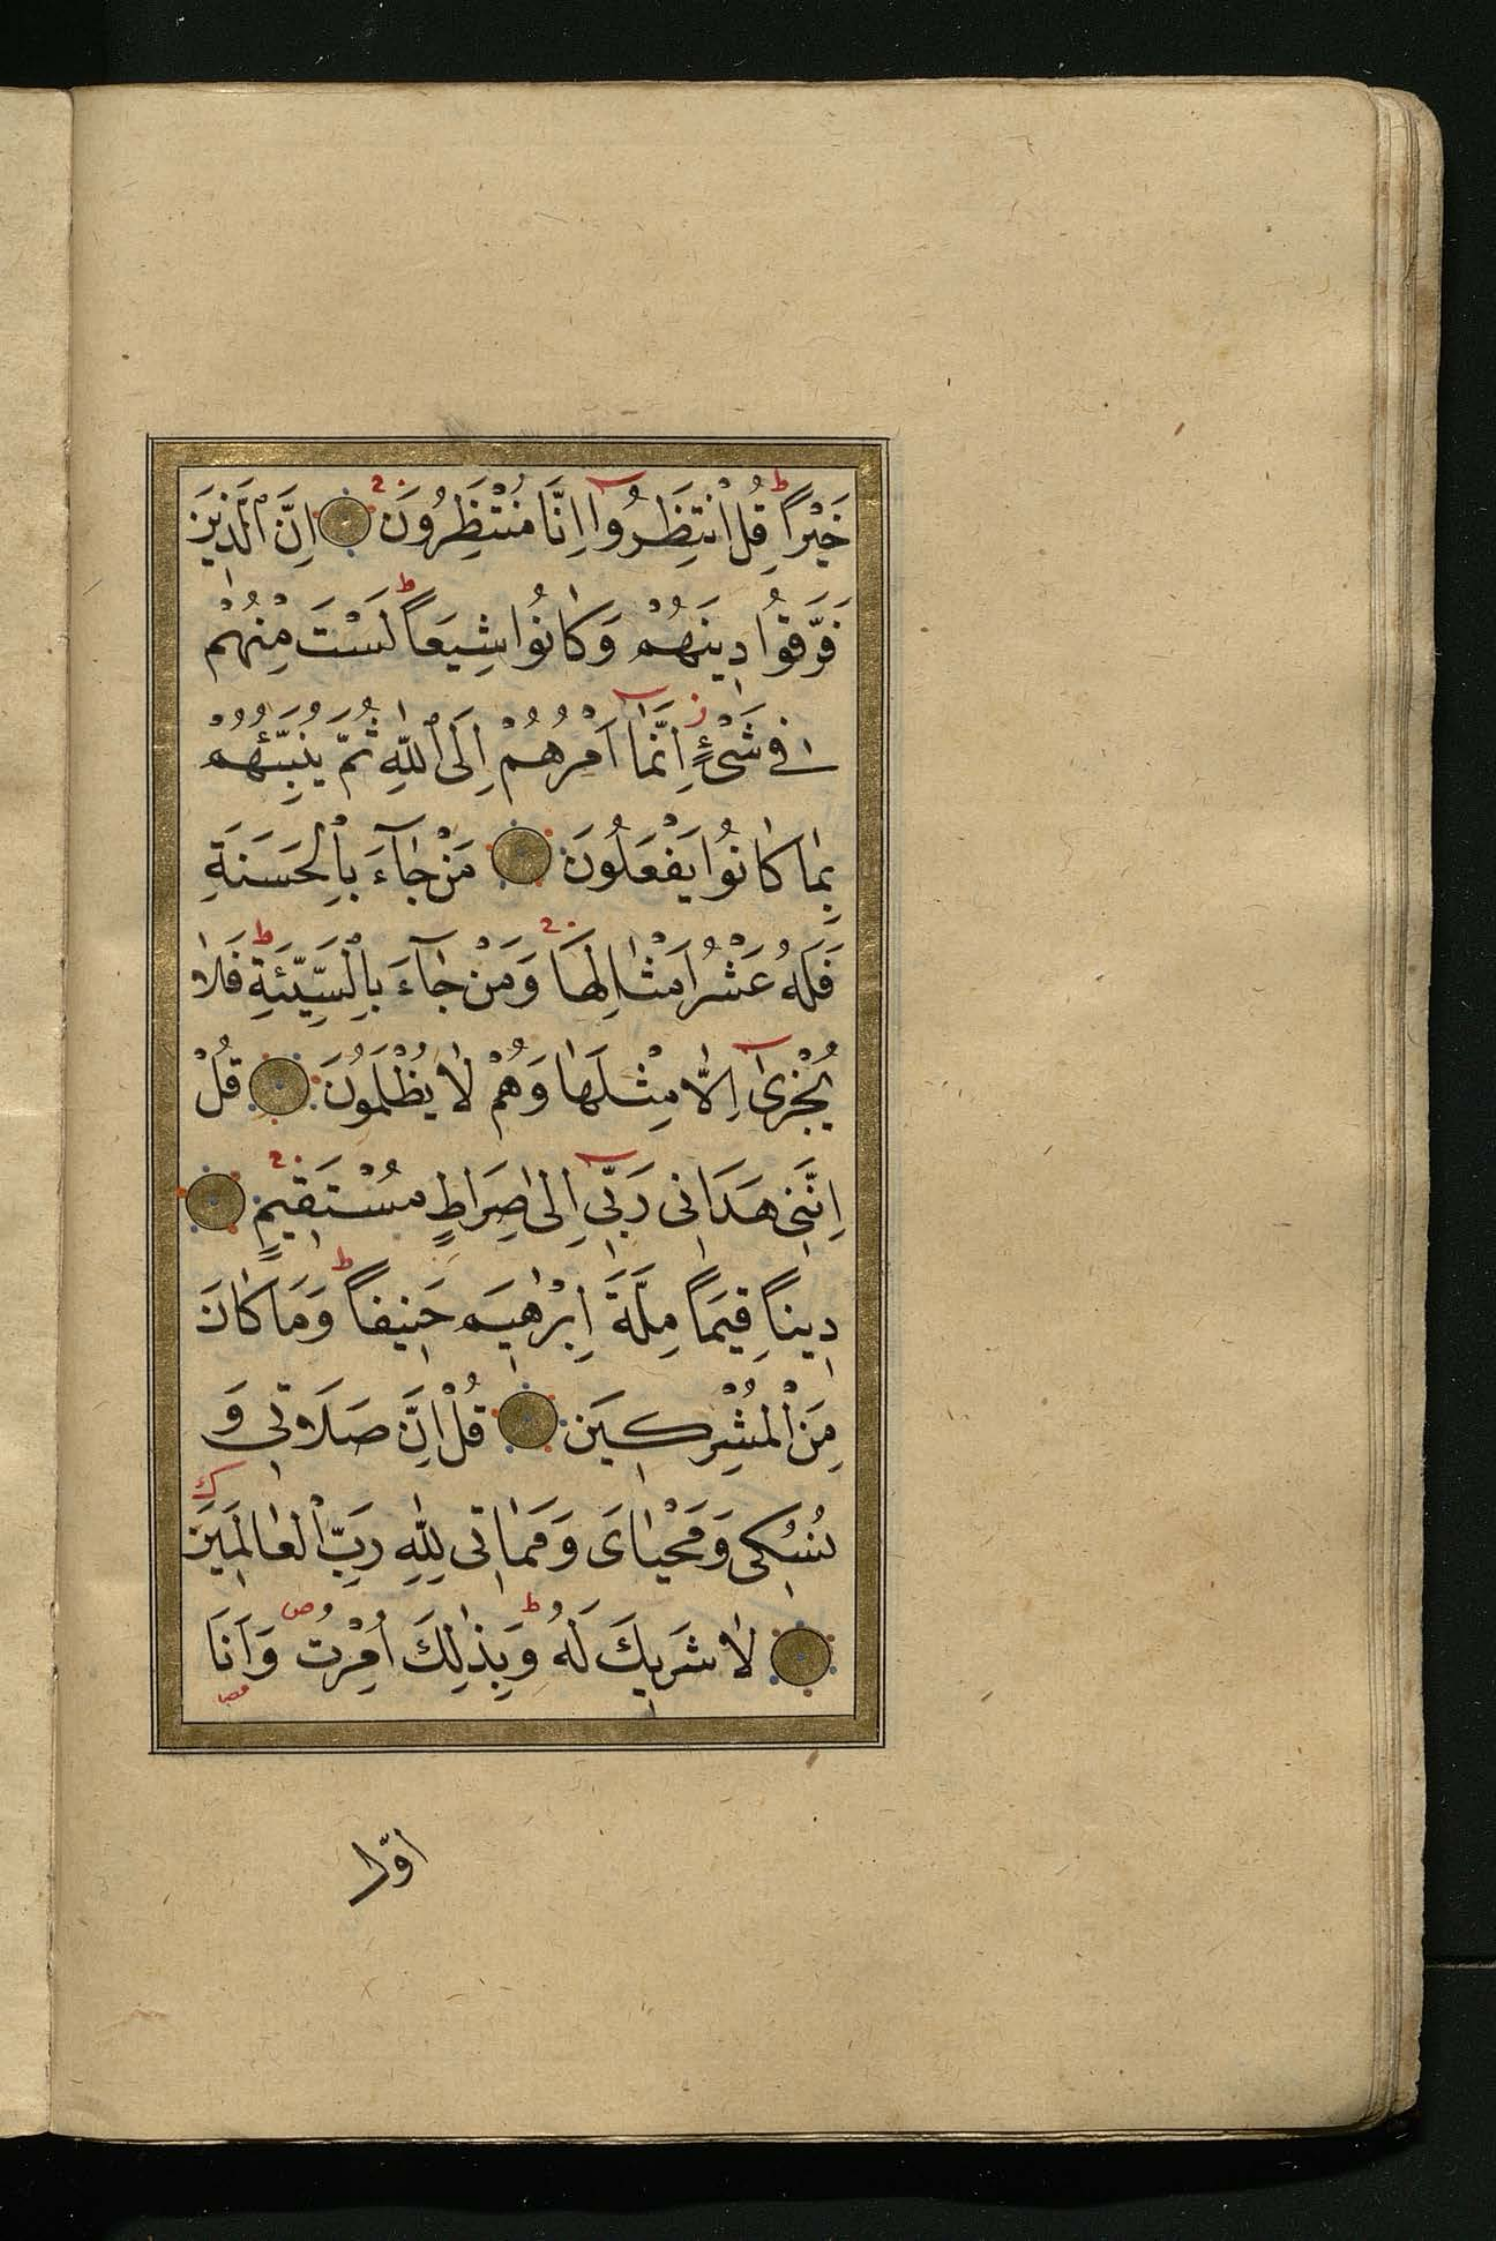 خَيْراً قُلِ انْتَظِرُوا اِنَّا مُنْتَظِرُونَ اِنَّ الَّذِينَ
فَرَّقُوا دِينَهُمْ وَكَانُوا شِيَعاً لَسْتَ مِنْهُمْ
فِي شَيْءٍ اِنَّمَا اَمْرُهُمْ اِلَى اللّٰهِ ثُمَّ يُنَبِّئُهُمْ
بِمَا كَانُوا يَفْعَلُونَ مَنْ جَآءَ بِالْحَسَنَةِ
فَلَهُ عَشْرُ اَمْثَالِهَا وَمَنْ جَآءَ بِالسَّيِّئَةِ فَلَا
يُجْزٰى اِلَّا مِثْلَهَا وَهُمْ لَا يُظْلَمُونَ قُلْ
اِنَّنِى هَدَانِى رَبِّى اِلٰى صِرَاطٍ مُسْتَقِيمٍ
دِيناً قِيَماً مِلَّةَ اِبْرٰهِيمَ حَنِيفاً وَمَا كَانَ
مِنَ الْمُشْرِكِينَ قُلْ اِنَّ صَلَاتِى وَ
نُسُكِى وَمَحْيَاىَ وَمَمَاتِى لِلّٰهِ رَبِّ الْعَالَمِينَ
لَا شَرِيكَ لَهُ وَبِذٰلِكَ اُمِرْتُ وَاَنَا
اوّل